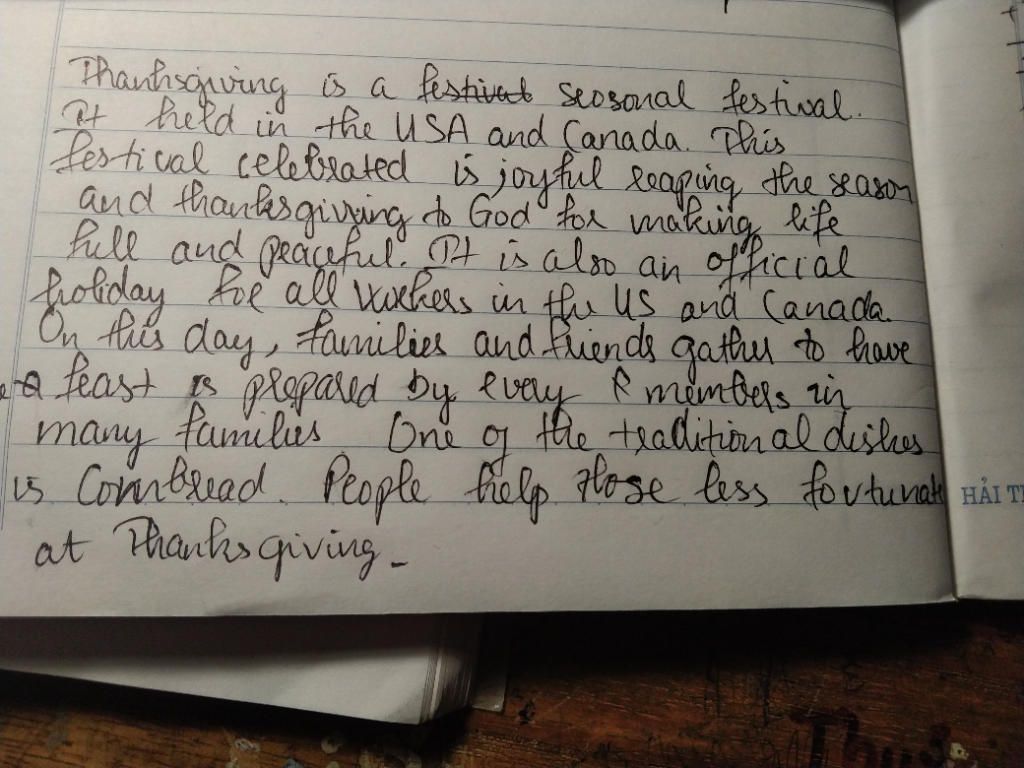 Thanksgiving is a festival seosonal festival.
It held in the USA and Canada. This
festival celebrated is joyful reaping the season
and thanksgiving to God for making life
full and peaceful. It is also an official
holiday for all workers in the US and Canada.
On this day, families and friends gather to have
a feast is prepared by every members in
many families One of the traditional dishes
is Cornbread. People help those less fortunate
at Thanksgiving.
HẢI